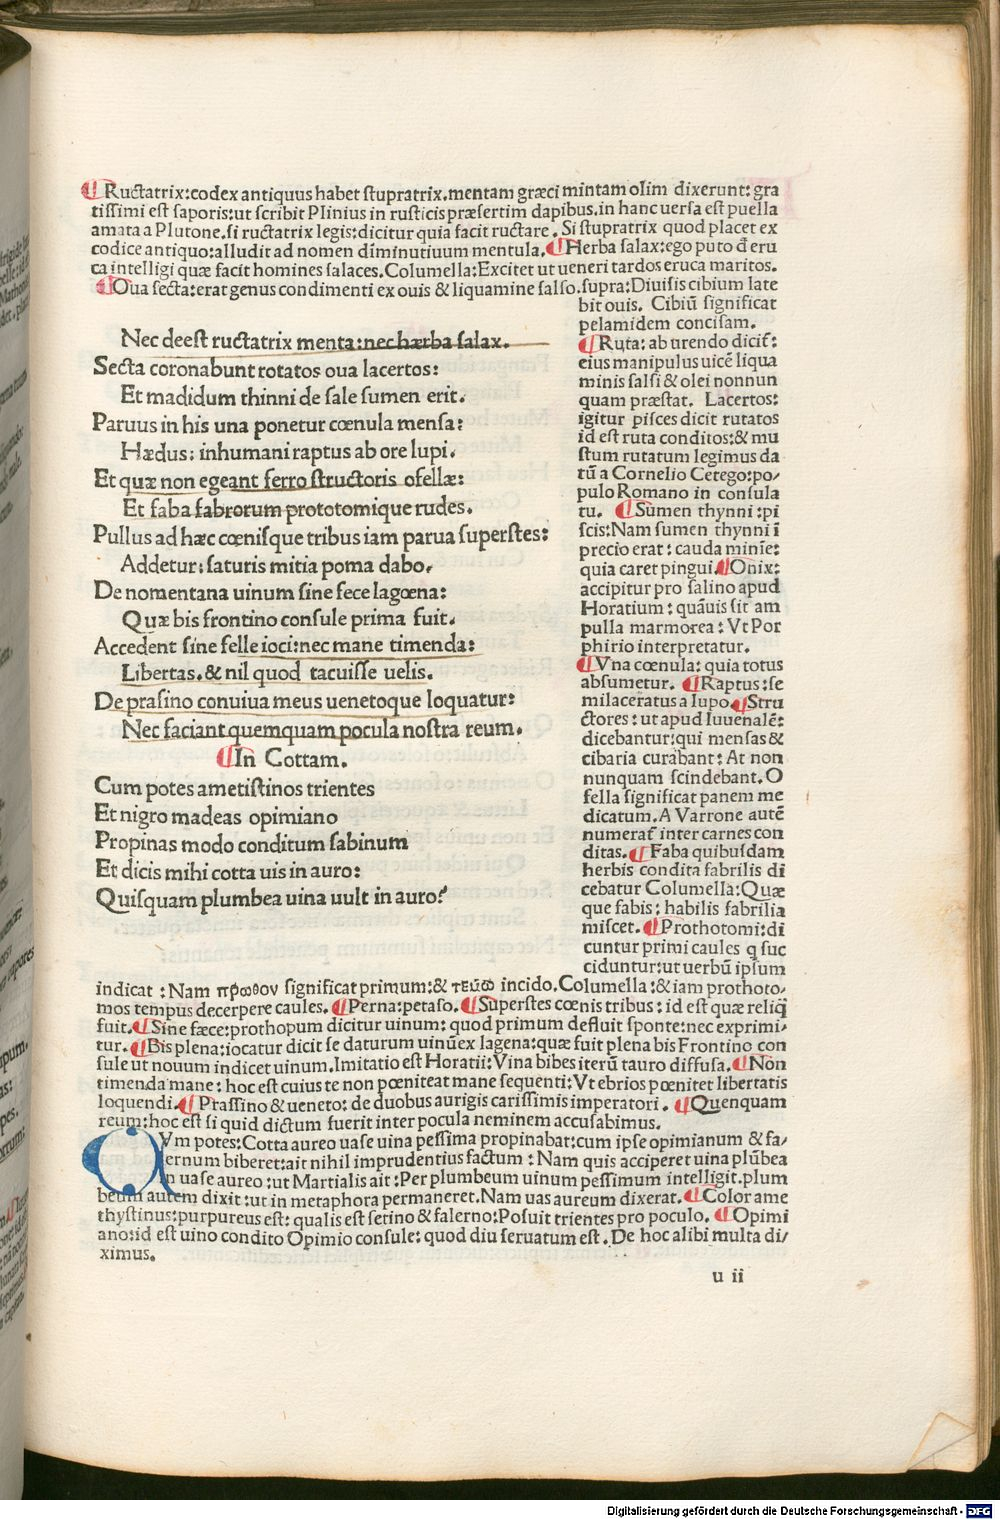 ¶ Ructatrix:codex antiquus habet stupratrix.mentam græci mintam olim dixerunt: gra
tissimi est saporis:ut scribit Plinius in rusticis præsertim dapibus.in hanc uersa est puella
amata a Plutone.si ructatrix legis:dicitur quia facit ructare. Si stupratrix quod placet ex
codice antiquo:alludit ad nomen diminutiuum mentula.¶Herba salax:ego puto ď eru
ca intelligi quæ facit homines salaces.Columella:Excitet ut ueneri tardos eruca maritos.
¶Oua secta:erat genus condimenti ex ouis & liquamine salso.supra:Diuisis cibium late
bit ouis. Cibiū significat
pelamidem concisam.
Nec deest ructatrix menta:nec hærba salax.
Secta coronabunt rotatos oua lacertos:
Et madidum thinni de sale sumen erit.
Paruus in his una ponetur cœnula mensa:
Hædus: inhumani raptus ab ore lupi.
Et quæ non egeant ferro structoris ofellæ:
Et faba fabrorum prototomique rudes.
Pullus ad hæc cœnisque tribus iam parua superstes:
Addetur: saturis mitia poma dabo.
De nomentana uinum sine fece lagœna:
Quæ bis frontino consule prima fuit.
Accedent sine felle ioci:nec mane timenda:
Libertas.& nil quod tacuisse uelis.
De prasino conuiua meus uenetoque loquatur:
Nec faciant quemquam pocula nostra reum.
¶In Cottam.
Cum potes ametistinos trientes
Et nigro madeas opimiano
Propinas modo conditum sabinum
Et dicis mihi cotta uis in auro:
Quisquam plumbea uina uult in auro?
¶Ruta: ab urendo dicit᷑:
eius manipulus uicē liqua
minis salsi & olei nonnun
quam præstat. Lacertos:
igitur pisces dicit rutatos
id est ruta conditos:& mu
stum rutatum legimus da
tū a Cornelio Cetego:po/
pulo Romano in consula
tu. ¶Sumen thynni:pi
scis:Nam sumen thynni ī
precio erat: cauda minīe:
quia caret pingui.¶Onix:
accipitur pro salino apud
Horatium: quāuis sit am
pulla marmorea: Vt Por
phirio interpretatur.
¶Vna cœnula: quia totus
absumetur. ¶Raptus:se
milaceratus a lupo.¶Stru
ctores: ut apud Iuuenalē:
dicebantur:qui mensas &
cibaria curabant: At non
nunquam scindebant. O
fella significat panem me
dicatum. A Varrone autē
numerat᷑ inter carnes con
ditas.¶Faba quibusdam
herbis condita fabrilis di
cebatur Columella: Quæ
que fabis: habilis fabrilia
miscet. ¶Prothotomi:di
cuntur primi caules q̄ suc
ciduntur:ut uerbū ipsum
indicat: Nam πρωθον significat primum:& τεμω incido.Columella:& iam prothoto/
mos tempus decerpere caules. ¶Perna:petaso.¶Superstes cœnis tribus: id est quæ reliq̄
fuit.¶Sine fæce:prothopum dicitur uinum: quod primum defluit sponte:nec exprimi/
tur.¶Bis plena:iocatur dicit se daturum uinū ex lagena:quæ fuit plena bis Frontino con
sule ut nouum indicet uinum.Imitatio est Horatii:Vina bibes iterū tauro diffusa.¶Non
timenda mane: hoc est cuius te non pœniteat mane sequenti:Vt ebrios pœnitet libertatis
loquendi.¶Prassino & ueneto: de duobus aurigis carissimis imperatori. ¶Quenquam
reum:hoc est si quid dictum fuerit inter pocula neminem accusabimus.
CVm potes:Cotta aureo uase uina pessima propinabat:cum ipse opimianum & fa/
lernum biberet:ait nihil imprudentius factum: Nam quis acciperet uina plūbea
in uase aureo:ut Martialis ait:Per plumbeum uinum pessimum intelligit.plum
beum autem dixit:ut in metaphora permaneret.Nam uas aureum dixerat.¶Color ame
thystinus:purpureus est: qualis est setino & falerno:Posuit trientes pro poculo. ¶Opimi
ano:id est uino condito Opimio consule: quod diu seruatum est. De hoc alibi multa di/
ximus.
u ii
Digitalisierung gefördert durch die Deutsche Forschungsgemeinschaft - DFG